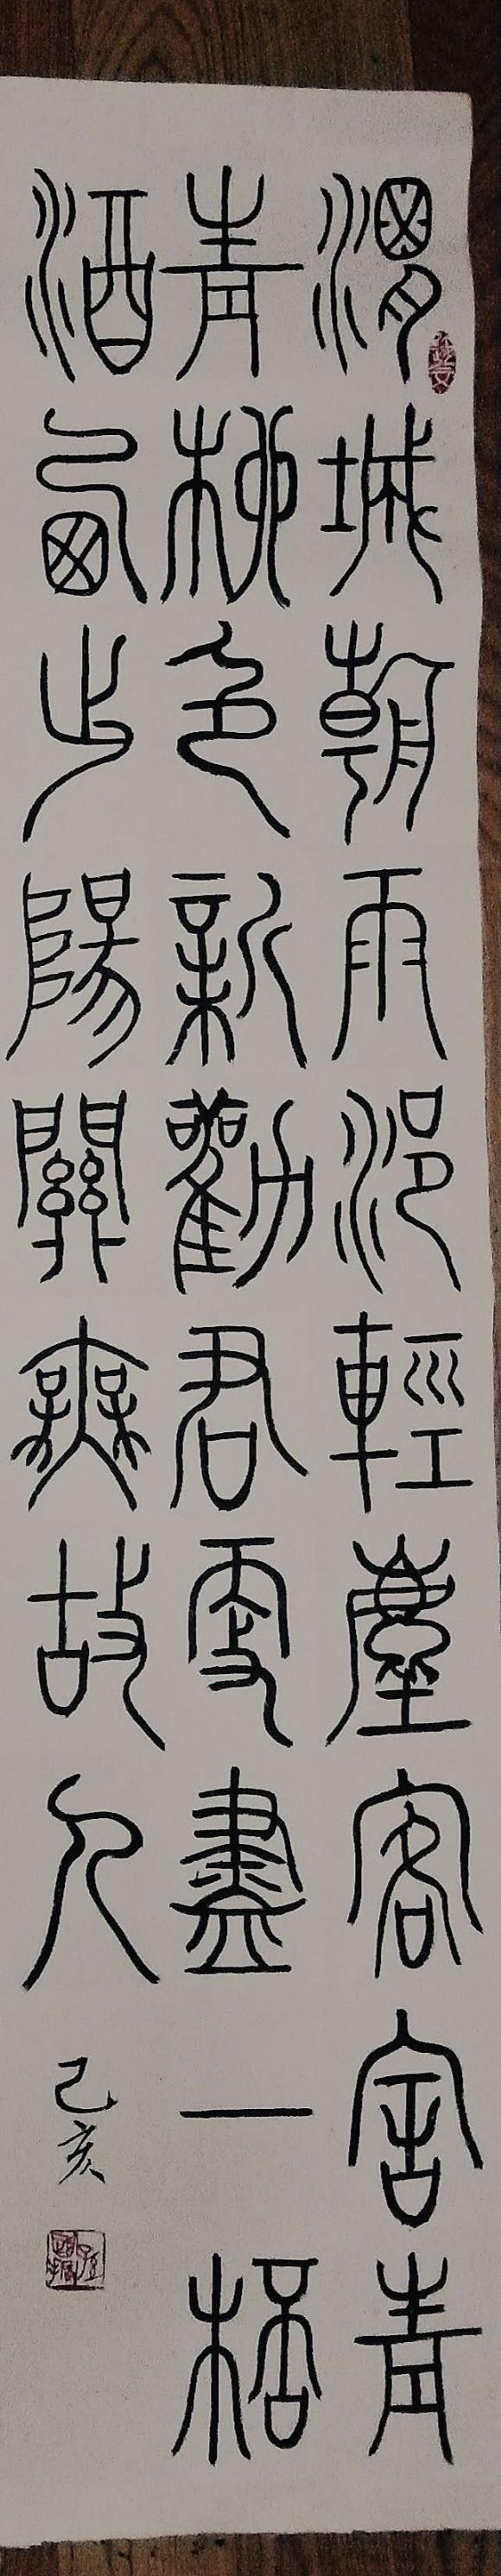 渭城朝雨浥輕塵客舍青
青柳色新勸君更盡一桮
酒西出陽關無故人
己亥